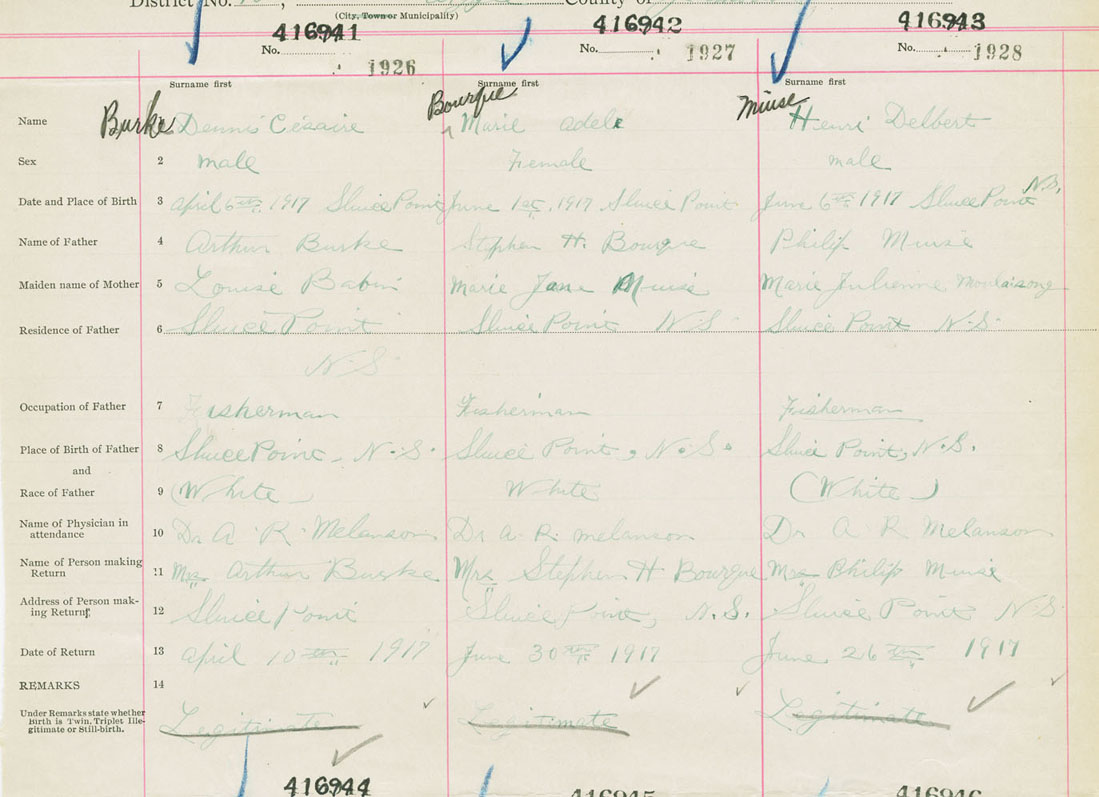 District No.
County of
(City, Town or Municipality)
416941 416942 416943
No. 1926 No. 1927 No. 1928
Surname first Surname first Surname first
Name Burke Dennis Césaire Bourque Marie adele Muise Henri Delbert
Sex 2 male Female male
Date and Place of Birth 3 april 6th, 1917 Sluice Point June 1st, 1917 Sluice Point June 6th 1917 Sluice Point N.S.
Name of Father 4 Arthur Burke Stephen H. Bourque Philip Muise
Maiden name of Mother 5 Louise Babin Marie Jane Muise Marie Julienne Moulaisong
Residence of Father 6 Sluice Point Sluice Point N.S. Sluice Point N.S.
N.S.
Occupation of Father 7 Fisherman Fisherman Fisherman
Place of Birth of Father 8 Sluice Point - N.S. Sluice Point, N.S. Sluice Point, N.S.
and
Race of Father 9 (White) White (White)
Name of Physician in attendance 10 Dr A. R. Melanson Dr a. R. melanson Dr A R. Melanson
Name of Person making Return 11 Mrs Arthur Burke Mrs Stephen H Bourque Mrs Philip Muise
Address of Person making Return 12 Sluice Point Sluice Point, N.S. Sluice Point N.S
Date of Return 13 april 10th 1917 June 30th 1917 June 26th 1917
REMARKS 14
Under Remarks state whether Birth is Twin, Triplet Illegitimate or Still-birth. Legitimate Legitimate Legitimate
416944 416945 416946